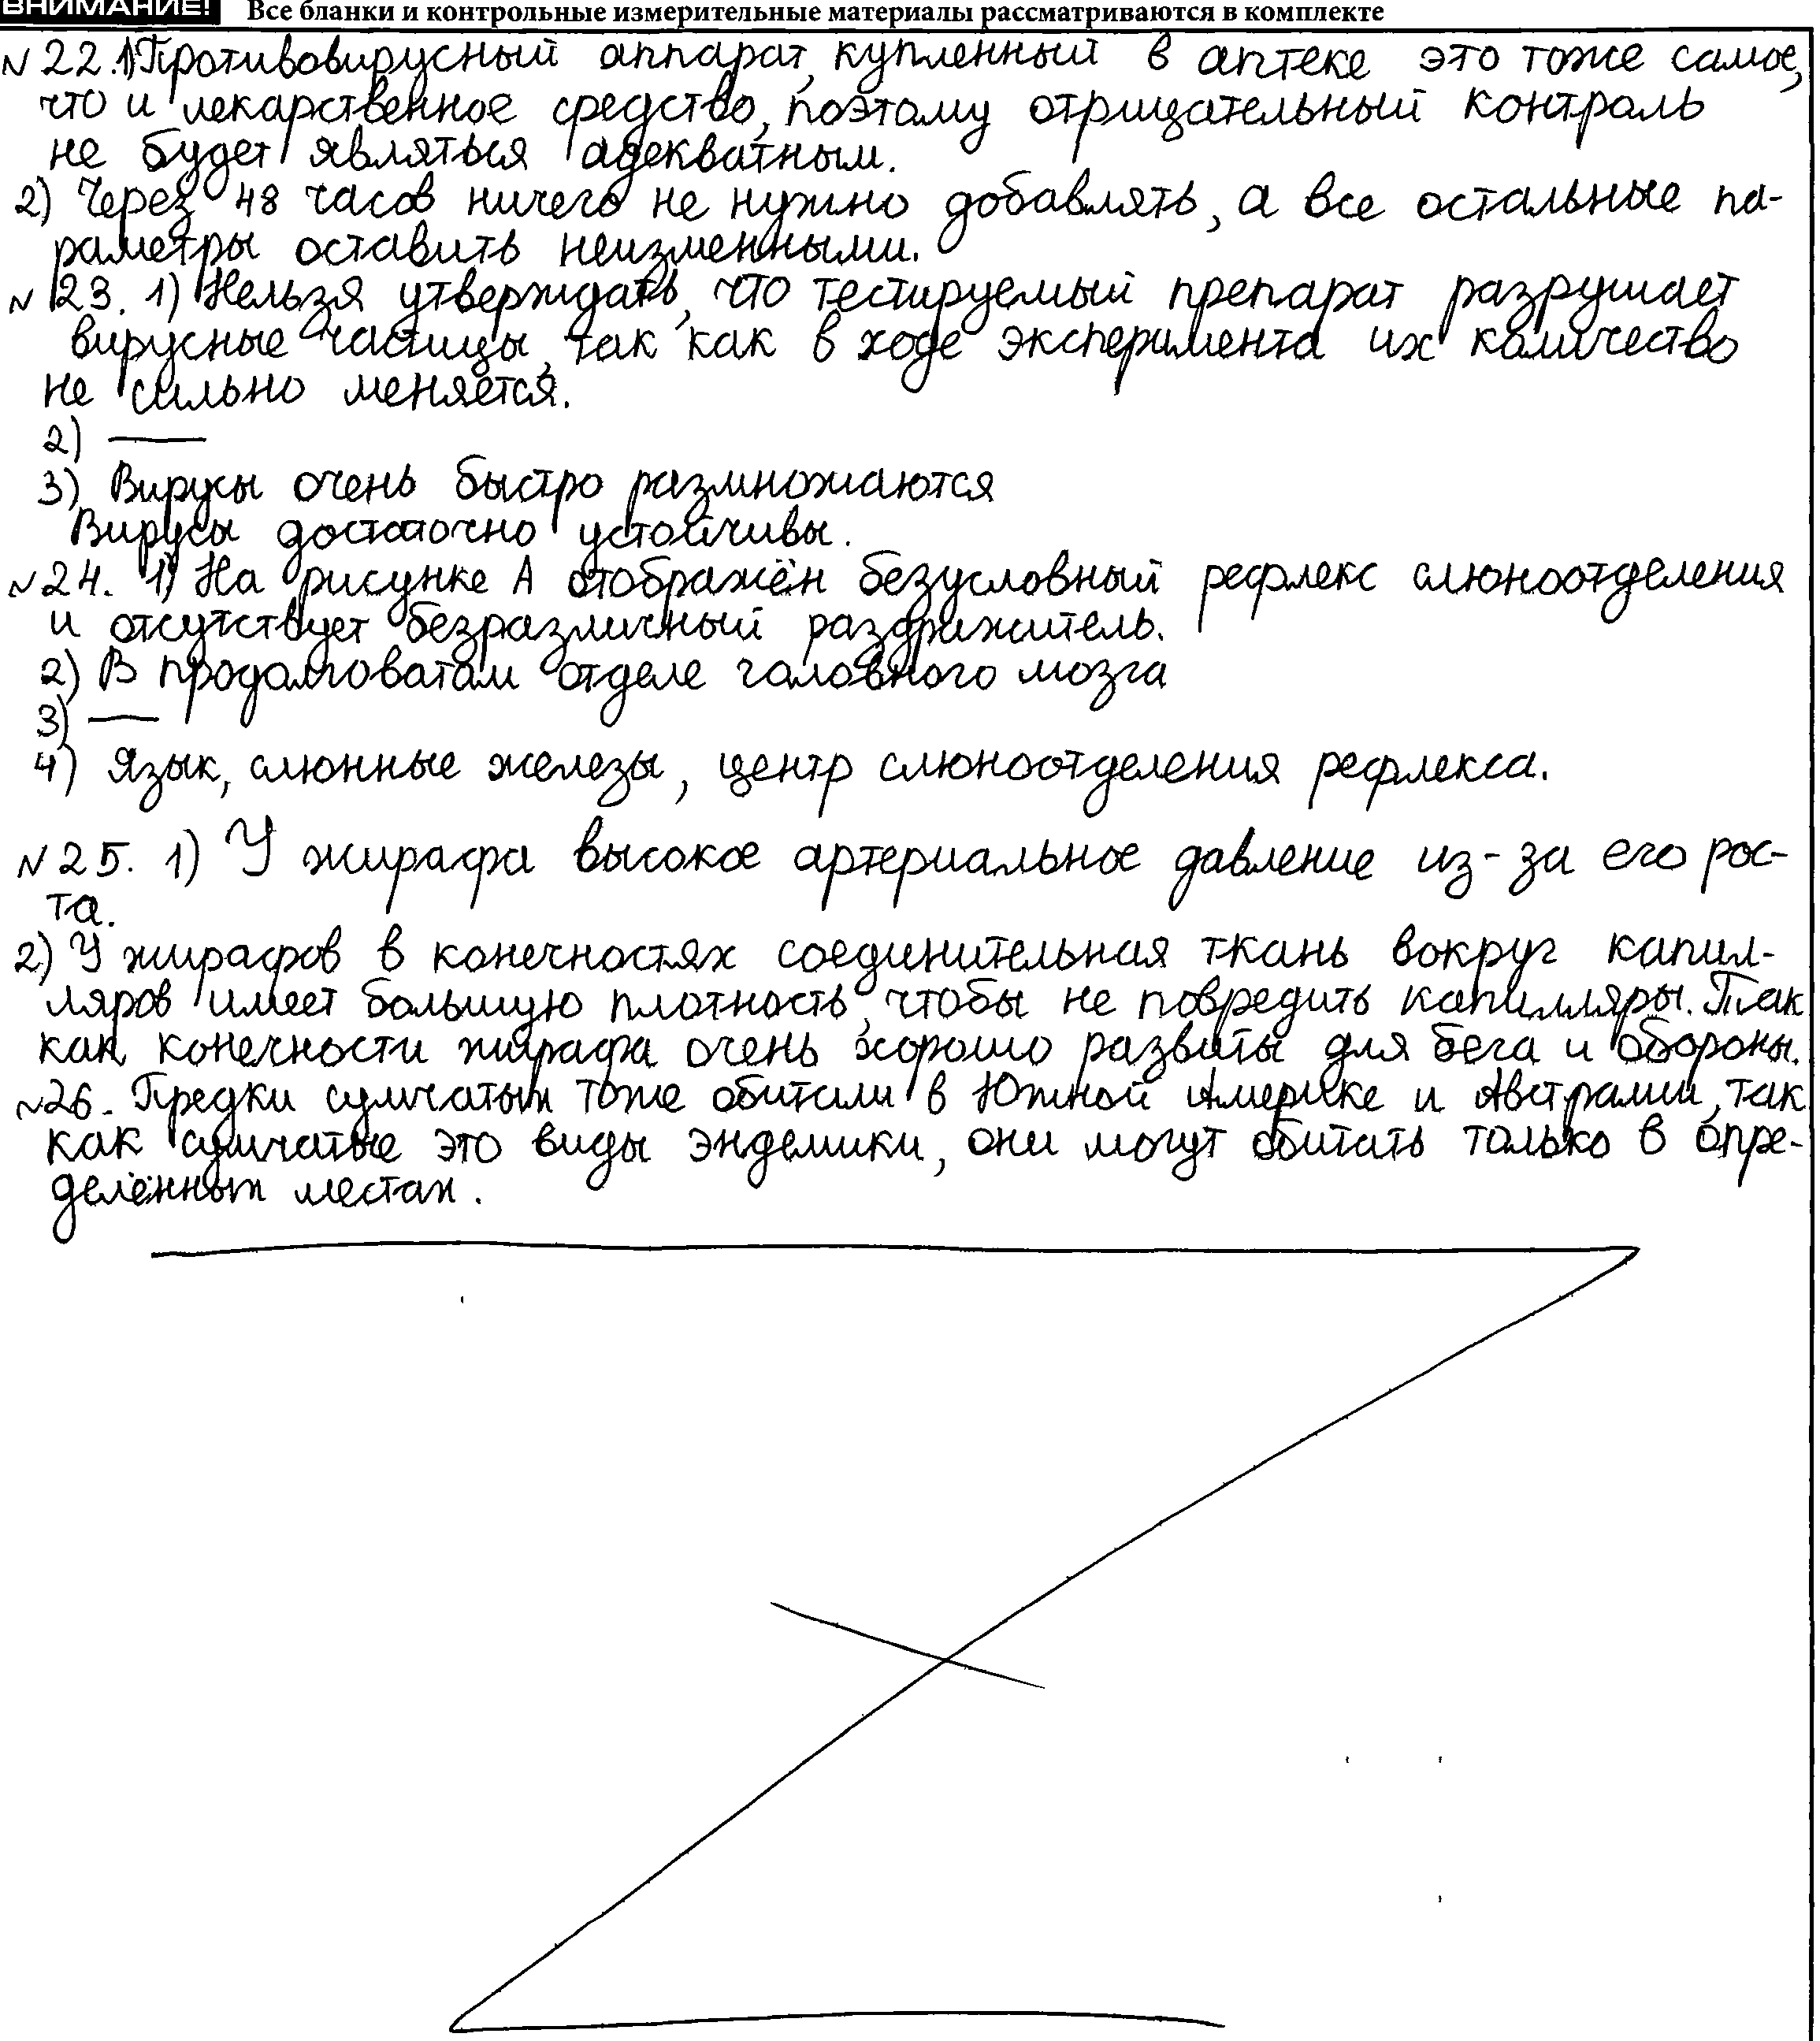 ВНИМАНИЕ! Все бланки и контрольные измерительные материалы рассматриваются в комплекте
№22.1) Противовирусный аппарат, купленный в аптеке это тоже самое,
что и лекарственное средство, поэтому отрицательный контроль
не будет являться адекватным.
2) Через 48 часов ничего не нужно добавлять, а все остальные па-
раметры оставить неизменными.
№23. 1) Нельзя утверждать, что тестируемый препарат разрушает
вирусные частицы, так как в ходе эксперимента их количество
не сильно меняется.
2) —
3) Вирусы очень быстро размножаются
Вирусы достаточно устойчивы.
№24. 1) На рисунке А отображён безусловный рефлекс слюноотделения
и отсутствует безразличный раздражитель.
2) В продолговатом отделе головного мозга
3) —
4) Язык, слюнные железы, центр слюноотделения рефлекса.
№25. 1) У жирафа высокое артериальное давление из-за его рос-
та.
2) У жирафов в конечностях соединительная ткань вокруг капил-
ляров имеет большую плотность, чтобы не повредить капилляры. Так
как конечности жирафа очень хорошо развиты для бега и обороны.
№26. Предки сумчатых тоже обитали в Южной Америке и Австралии, так
как сумчатые это виды эндемики, они могут обитать только в опре-
делённых местах.